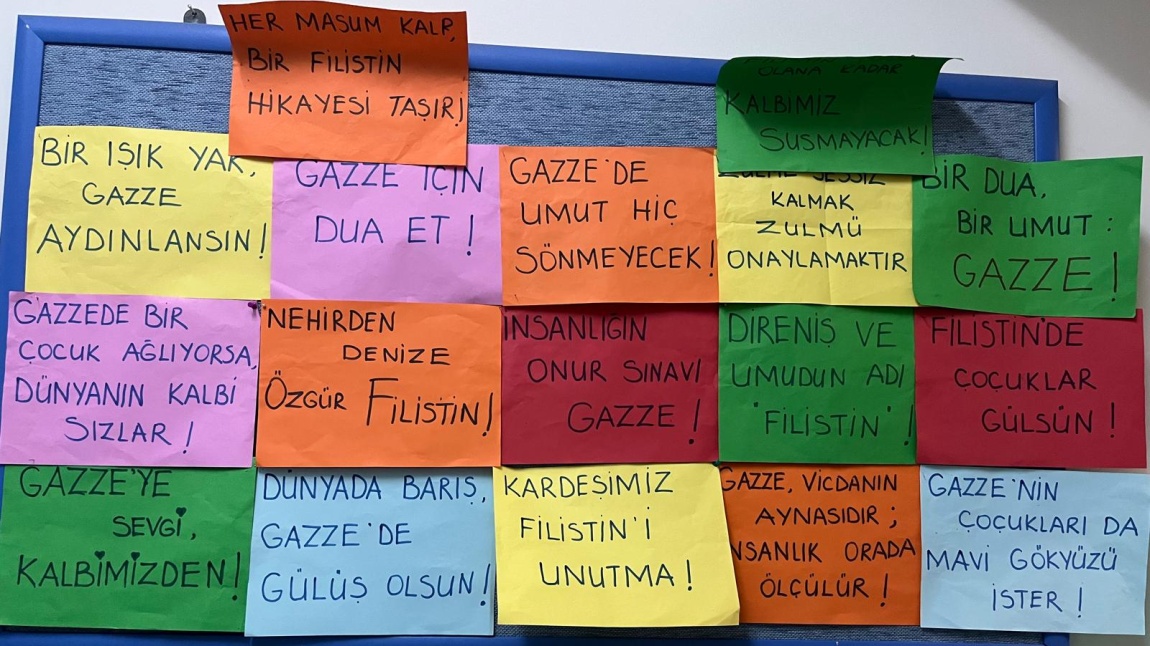 HER MASUM KALP,
BİR FİLİSTİN
HİKAYESİ TAŞIR!
OLANA KADAR
KALBİMİZ
SUSMAYACAK!
BİR IŞIK YAK,
GAZZE
AYDINLANSIN!
GAZZE İÇİN
DUA ET!
GAZZE'DE
UMUT HİÇ
SÖNMEYECEK!
ZULME SESSİZ
KALMAK
ZULMÜ
ONAYLAMAKTIR
BİR DUA,
BİR UMUT:
GAZZE!
GAZZEDE BİR
ÇOCUK AĞLIYORSA,
DÜNYANIN KALBİ
SIZLAR!
NEHİRDEN
DENİZE
ÖZGÜR FİLİSTİN!
İNSANLIĞIN
ONUR SINAVI
GAZZE!
DİRENİŞ VE
UMUDUN ADI
'FİLİSTİN'!
FİLİSTİN'DE
ÇOÇUKLAR
GÜLSÜN!
GAZZE'YE
SEVGİ,
KALBİMİZDEN!
DÜNYADA BARIŞ,
GAZZE'DE
GÜLÜŞ OLSUN!
KARDEŞİMİZ
FİLİSTİN'İ
UNUTMA!
GAZZE, VİCDANIN
AYNASIDIR;
İNSANLIK ORADA
ÖLÇÜLÜR!
GAZZE'NİN
ÇOÇUKLARI DA
MAVİ GÖKYÜZÜ
İSTER!